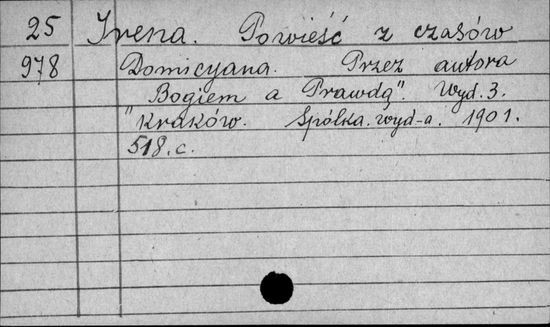 25 Irena. Powieść z czasów
978 Domicyana. Przez autora
Bogiem a Prawdą". Wyd. 3.
"Kraków. Spólka. wyd-a. 1901.
518. c.